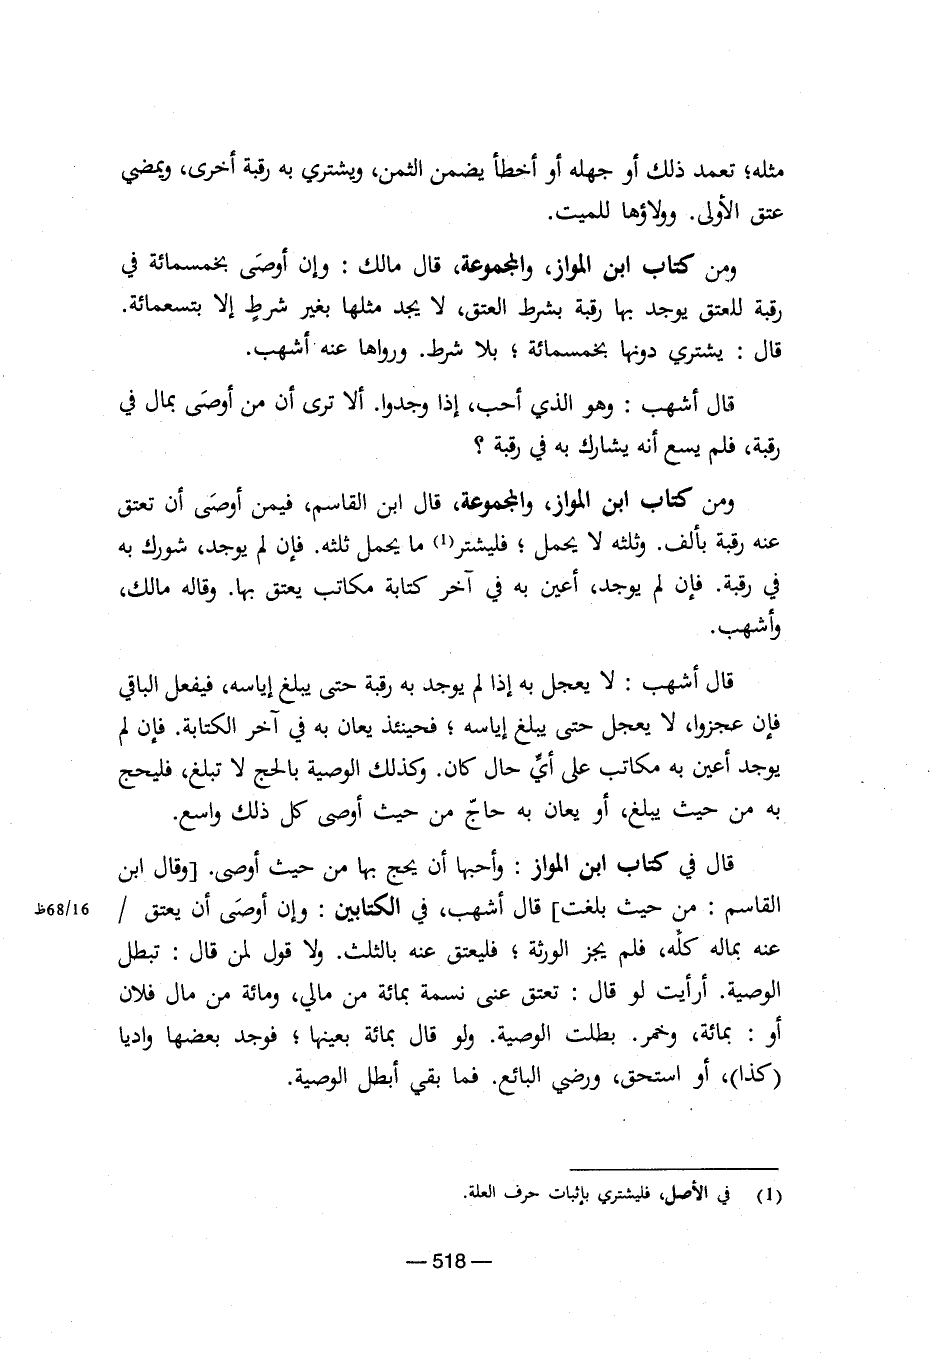 مثله؛ تعمد ذلك أو جهله أو أخطأ يضمن الثمن، ويشتري به رقبة أخرى، ويمضي
عتق الأولى. وولاؤها للميت.
ومن كتاب ابن المواز، والمجموعة، قال مالك : وإن أوصَى بخمسمائة في
رقبة للعتق يوجد بها رقبة بشرط العتق، لا يجد مثلها بغير شرطٍ إلا بتسعمائة.
قال : يشتري دونها بخمسمائة ؛ بلا شرط. ورواها عنه أشهب.
قال أشهب : وهو الذي أحب، إذا وجدوا. ألا ترى أن من أوصَى بمال في
رقبة، فلم يسع أنه يشارك به في رقبة ؟
ومن كتاب ابن المواز، والمجموعة، قال ابن القاسم، فيمن أوصَى أن تعتق
عنه رقبة بألف. وثلثه لا يحمل ؛ فليشتر(1) ما يحمل ثلثه. فإن لم يوجد، شورك به
في رقبة. فإن لم يوجد، أعين به في آخر كتابة مكاتب يعتق بها. وقاله مالك،
وأشهب.
قال أشهب : لا يعجل به إذا لم يوجد به رقبة حتى يبلغ إياسه، فيفعل الباقي
فإن عجزوا، لا يعجل حتى يبلغ إياسه ؛ فحينئذ يعان به في آخر الكتابة. فإن لم
يوجد أعين به مكاتب على أيِّ حال كان. وكذلك الوصية بالحج لا تبلغ، فليحج
به من حيث يبلغ، أو يعان به حاجّ من حيث أوصى كل ذلك واسع.
قال في كتاب ابن المواز : وأحبها أن يحج بها من حيث أوصى. [وقال ابن
القاسم : من حيث بلغت] قال أشهب، في الكتابين : وإن أوصَى أن يعتق / 68/16ظ
عنه بماله كلّه، فلم يجز الورثة ؛ فليعتق عنه بالثلث. ولا قول لمن قال : تبطل
الوصية. أرأيت لو قال : تعتق عنى نسمة بمائة من مالي، ومائة من مال فلان
أو : بمائة، وخمر. بطلت الوصية. ولو قال بمائة بعينها ؛ فوجد بعضها واديا
(كذا)، أو استحق، ورضي البائع. فما بقي أبطل الوصية.
(1) في الأصل، فليشتري بإثبات حرف العلة.
— 518 —